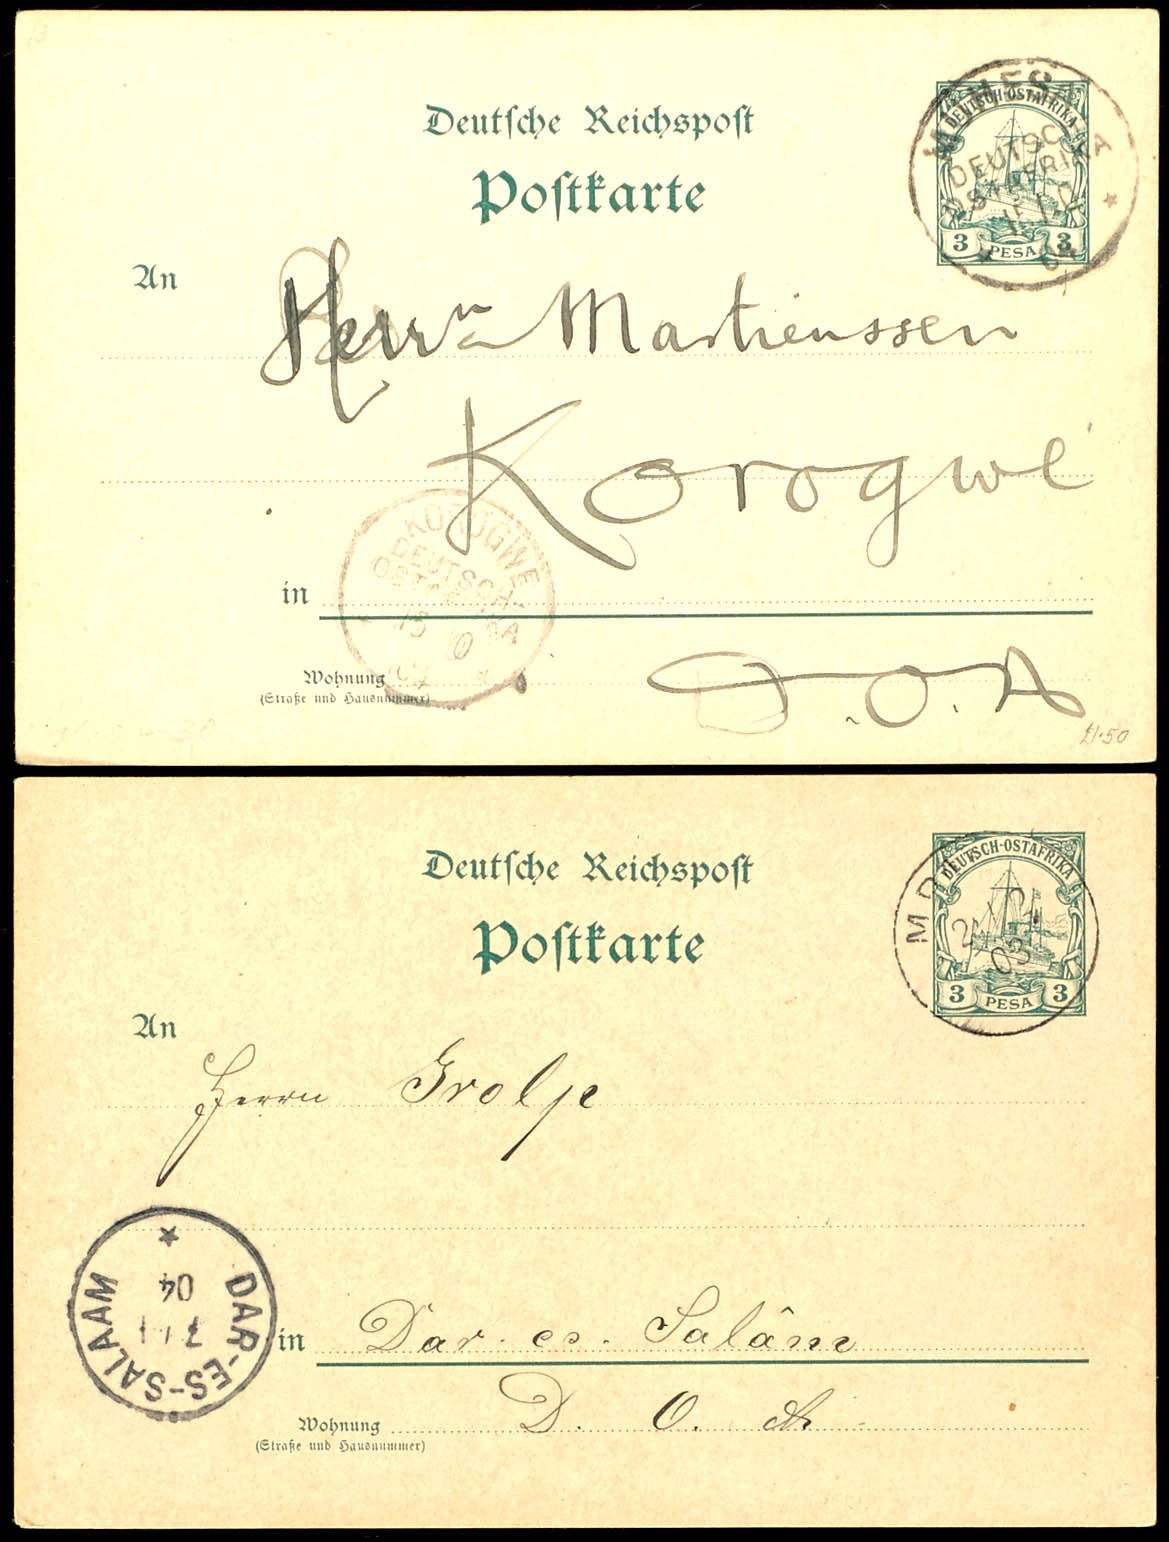 Deutsche Reichspost
Postkarte
DEUTSCH-OSTAFRIKA
3 PESA 3
DEUTSCH
OSTAFRIKA
An
Herrn Martienssen
Korogwe
KOROGWE
DEUTSCH-
OSTAFRIKA
in
Wohnung
(Straße und Hausnummer)
D.O.A
21.50
Deutsche Reichspost
Postkarte
DEUTSCH-OSTAFRIKA
03
3 PESA 3
An
Herrn Grolp
DAR-ES-SALAAM
7/1
04
in Dar-es-Salâm
Wohnung D. O. A.
(Straße und Hausnummer)